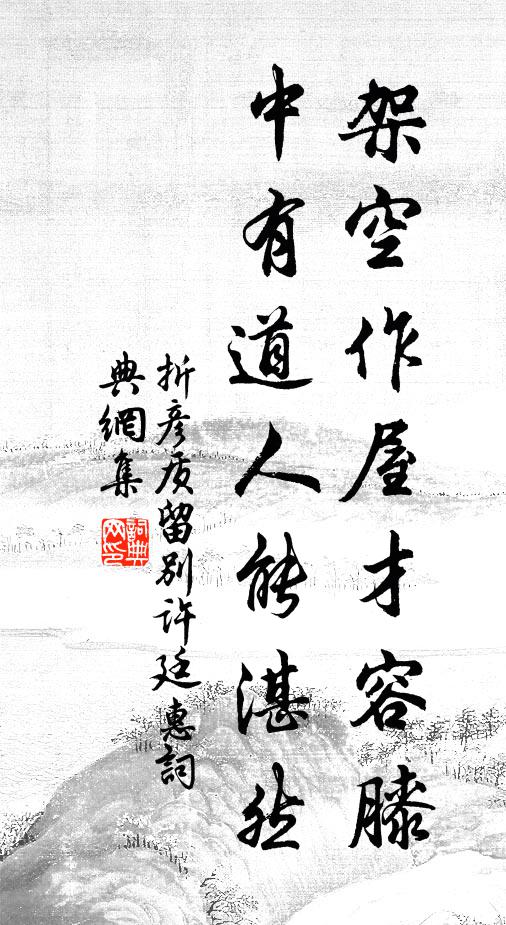 架空作屋才容膝
中有道人能湛然
折彦质留别许廷惠詞
典網集
詞典
网印